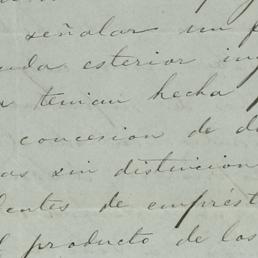 señalar un
esterior
tenian hecha
concesion de
sin distincion
de emprést
producto de los